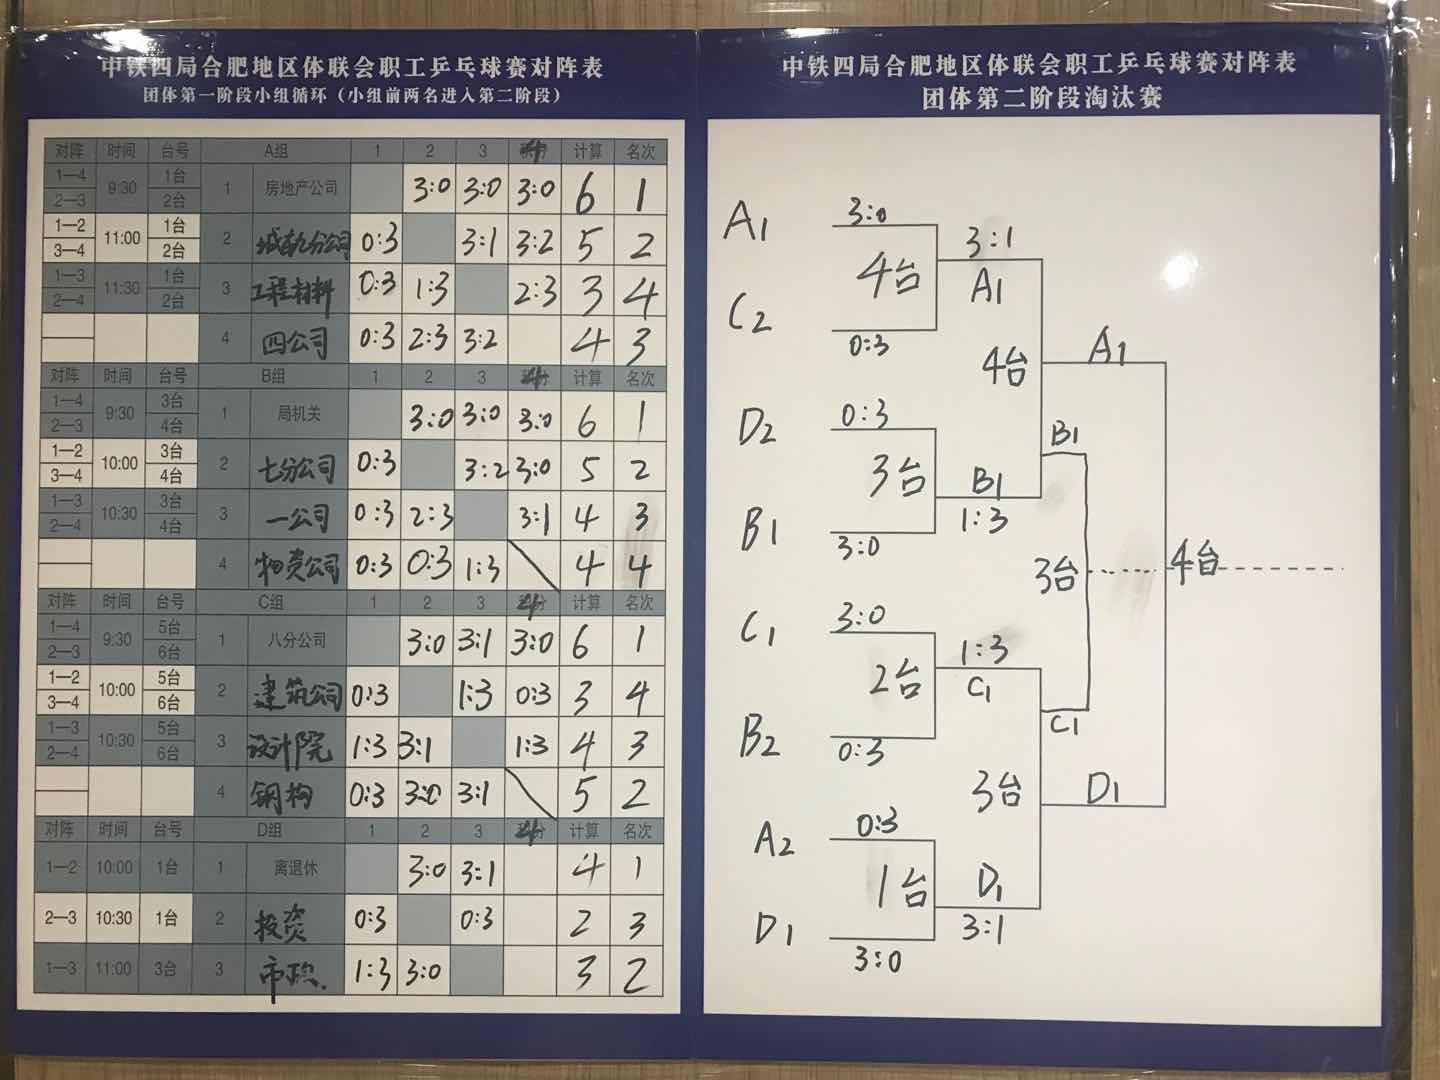 中铁四局合肥地区体联会职工乒乓球赛对阵表
团体第一阶段小组循环（小组前两名进入第二阶段）
对阵 时间 台号 A组 1 2 3 4 计算 名次
1—4 9:30 1台 1 房地产公司 3:0 3:0 3:0 6 1
2—3 2台
1—2 11:00 1台 2 城轨分公司 0:3 3:1 3:2 5 2
3—4 2台
1—3 11:30 1台 3 工程材料 0:3 1:3 2:3 3 4
2—4 2台
4 四公司 0:3 2:3 3:2 4 3
对阵 时间 台号 B组 1 2 3 4 计算 名次
1—4 9:30 3台 1 局机关 3:0 3:0 3:0 6 1
2—3 4台
1—2 10:00 3台 2 七分公司 0:3 3:2 3:0 5 2
3—4 4台
1—3 10:30 3台 3 一公司 0:3 2:3 3:1 4 3
2—4 4台
4 物资公司 0:3 0:3 1:3 4 4
对阵 时间 台号 C组 1 2 3 4 计算 名次
1—4 9:30 5台 1 八分公司 3:0 3:1 3:0 6 1
2—3 6台
1—2 10:00 5台 2 建筑公司 0:3 1:3 0:3 3 4
3—4 6台
1—3 10:30 5台 3 设计院 1:3 3:1 1:3 4 3
2—4 6台
4 钢构 0:3 3:0 3:1 5 2
对阵 时间 台号 D组 1 2 3 4 计算 名次
1—2 10:00 1台 1 离退休 3:0 3:1 4 1
2—3 10:30 1台 2 投资 0:3 0:3 2 3
1—3 11:00 3台 3 市政. 1:3 3:0 3 2
中铁四局合肥地区体联会职工乒乓球赛对阵表
团体第二阶段淘汰赛
A1 3:0
4台
C2 0:3
3:1
A1
D2 0:3
3台
B1 3:0
B1
1:3
4台
C1 3:0
2台
B2 0:3
1:3
C1
A2 0:3
1台
D1 3:0
D1
3:1
3台
A1
B1
3台
C1
D1
4台